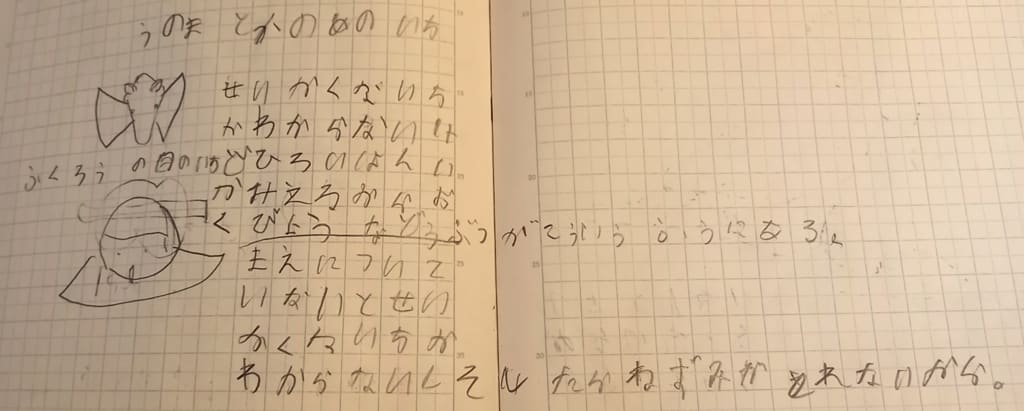 うのま とかのめの いち
せいかくないち
がわからないけ
ふくろうの目のいち
どひろいはんい
がみえるからお
くびょうなどうぶつがこういうふうになる。
まえについて
いないとせい
かくないちが
わからないしそしたらねずみがとれないから。